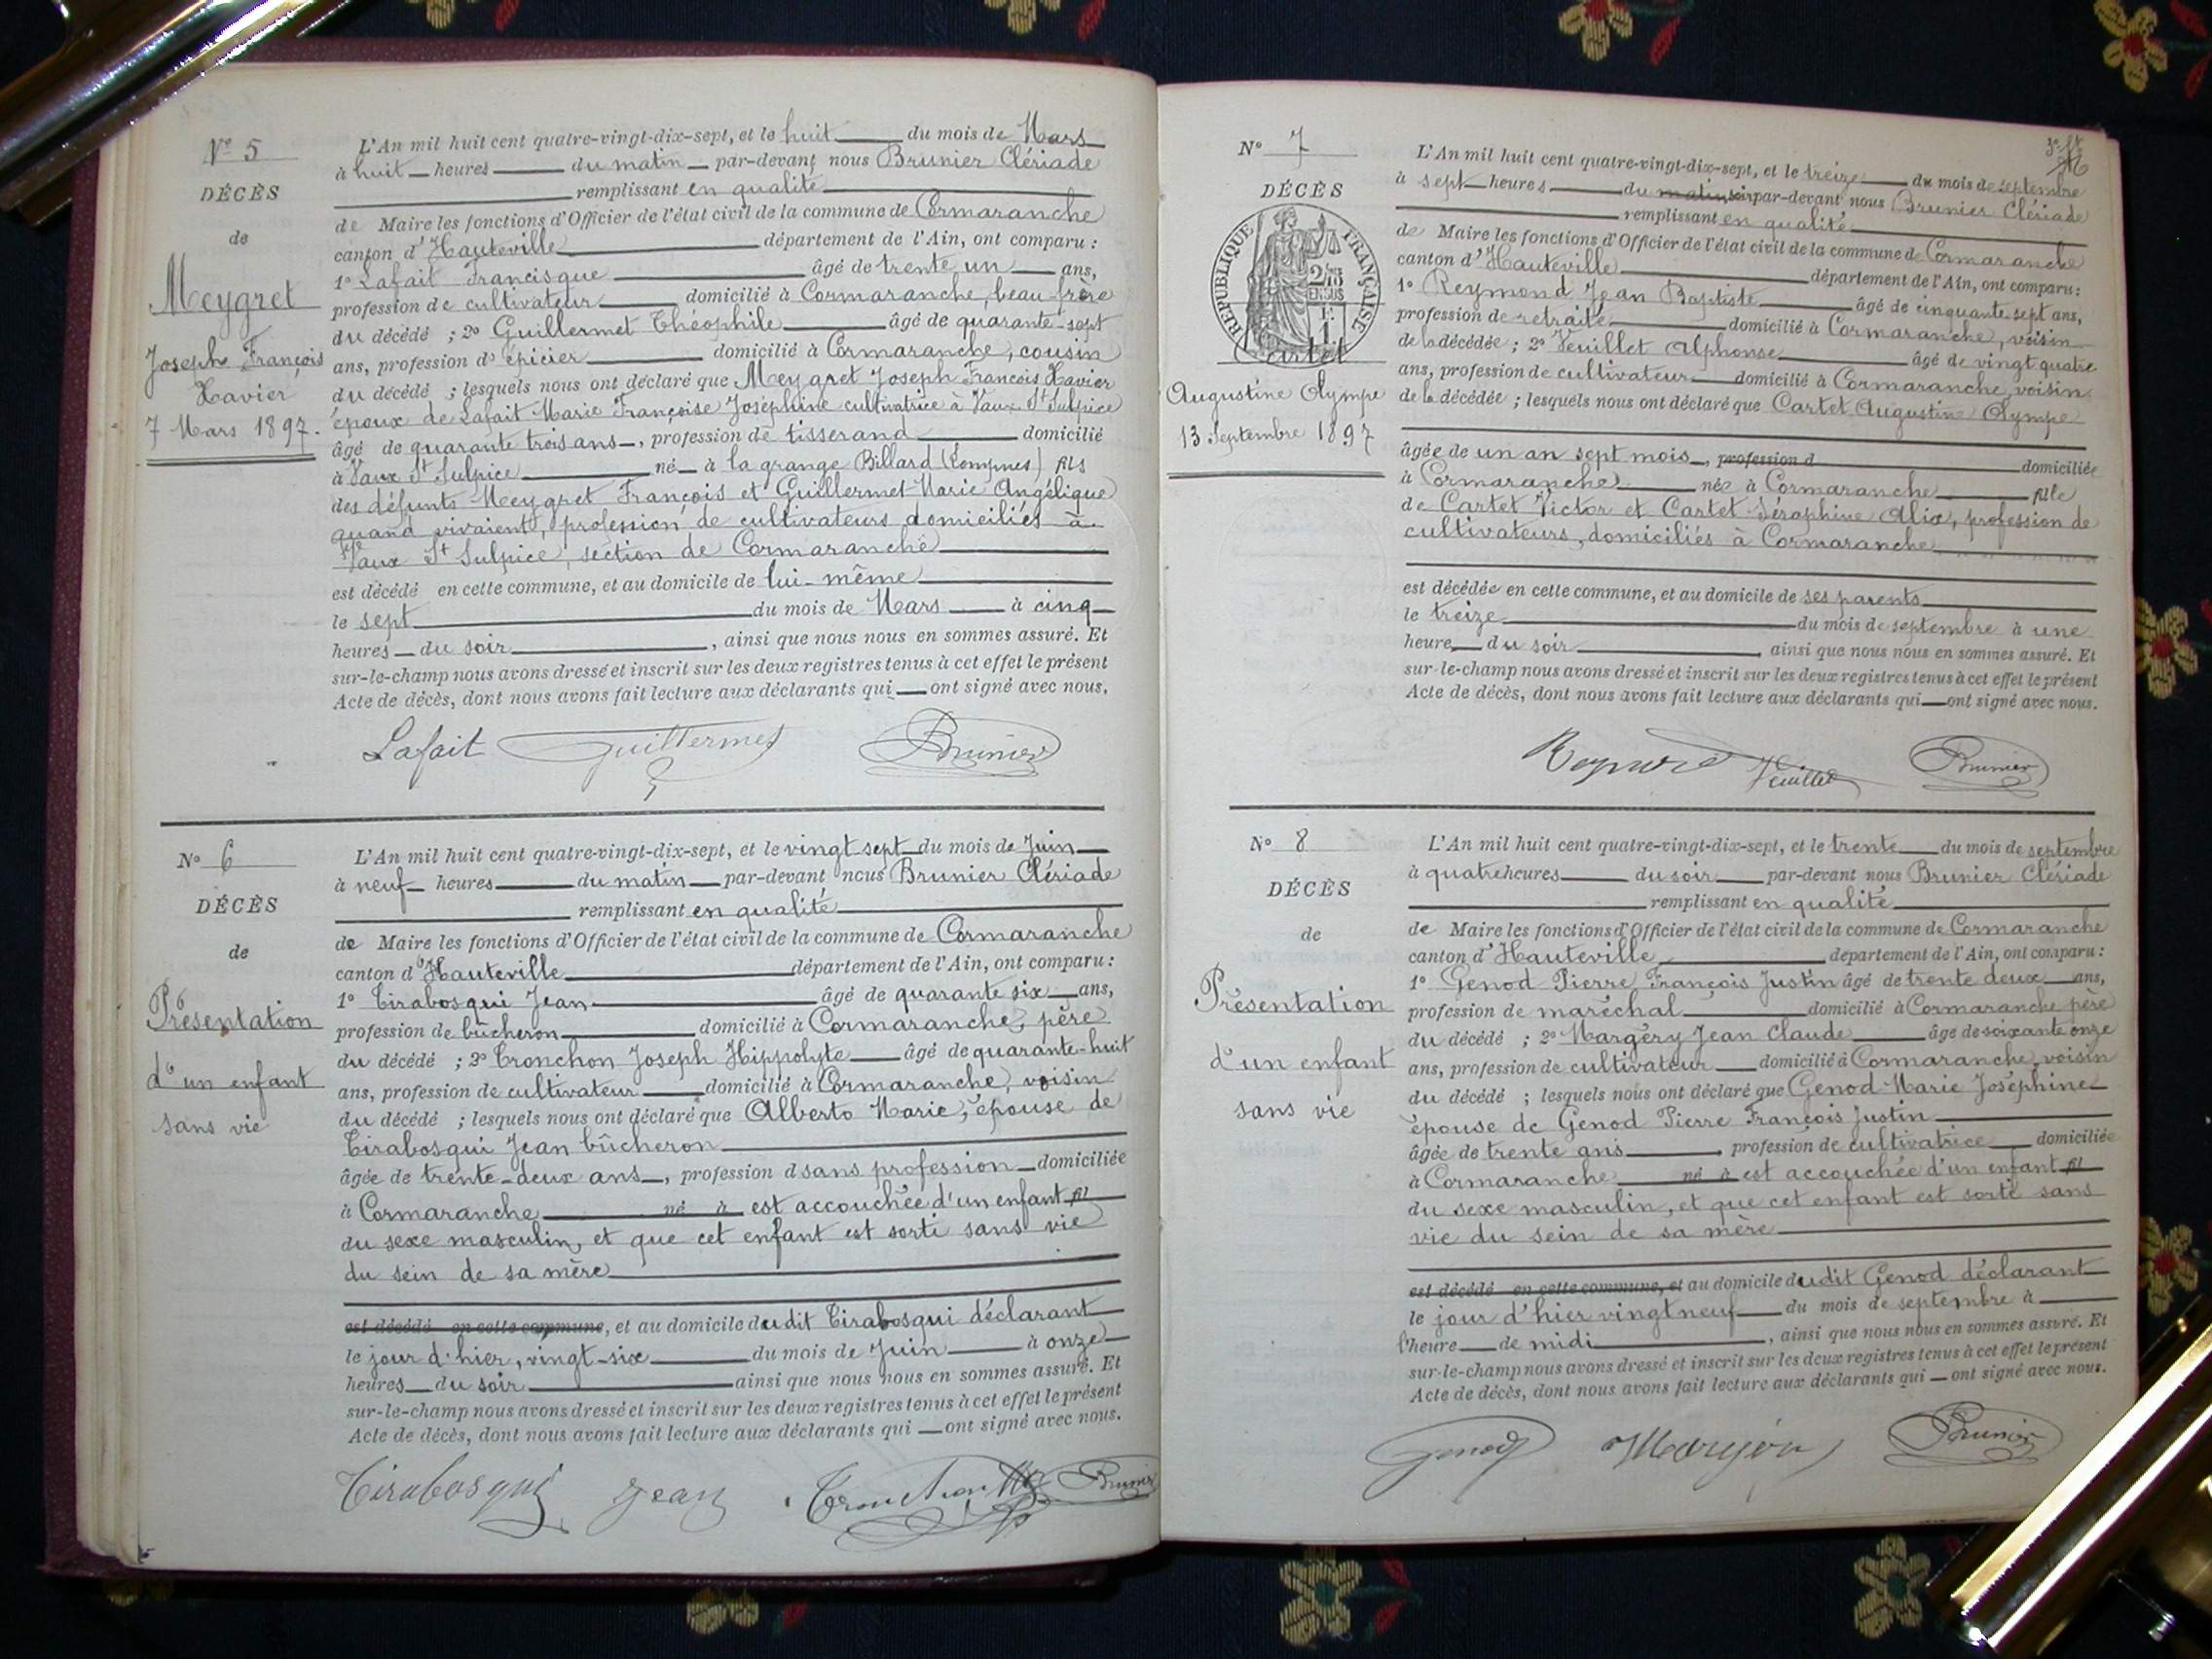 N° 5
DÉCÈS
de
Meygret
Joseph François
Xavier
7 Mars 1897.
L'An mil huit cent quatre-vingt-dix-sept, et le huit du mois de Mars
à huit heures du matin par-devant nous Brunier Clériade
remplissant en qualité
de Maire les fonctions d'Officier de l'état civil de la commune de Cormaranche
canton d'Hauteville département de l'Ain, ont comparu :
1° Lafait Francisque âgé de trente un ans,
profession de cultivateur domicilié à Cormaranche, beau-frère
du décédé ; 2° Guillermet Théophile âgé de quarante-sept
ans, profession d'épicier domicilié à Cormaranche, cousin
du décédé ; lesquels nous ont déclaré que Meygret Joseph François Xavier
époux de Lafait Marie Françoise Joséphine cultivatrice à Vaux St Sulpice
âgé de quarante trois ans, profession de tisserand domicilié
à Vaux St Sulpice né à la grange Billard (Lompnes) fils
des défunts Meygret François et Guillermet Marie Angélique
quand vivaient, profession de cultivateurs domiciliés à
Vaux St Sulpice, section de Cormaranche
est décédé en cette commune, et au domicile de lui-même
le sept du mois de Mars à cinq
heures du soir, ainsi que nous nous en sommes assuré. Et
sur-le-champ nous avons dressé et inscrit sur les deux registres tenus à cet effet le présent
Acte de décès, dont nous avons fait lecture aux déclarants qui ont signé avec nous.
Lafait Guillermet Brunier
N° 6
DÉCÈS
de
Présentation
d'un enfant
sans vie
L'An mil huit cent quatre-vingt-dix-sept, et le vingt sept du mois de Juin
à neuf heures du matin par-devant nous Brunier Clériade
remplissant en qualité
de Maire les fonctions d'Officier de l'état civil de la commune de Cormaranche
canton d'Hauteville département de l'Ain, ont comparu :
1° Tirabosqui Jean âgé de quarante six ans,
profession de bûcheron domicilié à Cormaranche, père
du décédé ; 2° Tronchon Joseph Hippolyte âgé de quarante-huit
ans, profession de cultivateur domicilié à Cormaranche, voisin
du décédé ; lesquels nous ont déclaré que Alberto Marie, épouse de
Tirabosqui Jean bûcheron
âgée de trente-deux ans, profession d sans profession domiciliée
à Cormaranche né à est accouchée d'un enfant fil
du sexe masculin, et que cet enfant est sorti sans vie
du sein de sa mère
est décédé en cette commune, et au domicile dudit Tirabosqui déclarant
le jour d'hier, vingt-six du mois de Juin à onze
heures du soir ainsi que nous nous en sommes assuré. Et
sur-le-champ nous avons dressé et inscrit sur les deux registres tenus à cet effet le présent
Acte de décès, dont nous avons fait lecture aux déclarants qui ont signé avec nous.
Tirabosqui Jean Tronchon Brunier
N° 7
DÉCÈS
RÉPUBLIQUE FRANÇAISE
Cartet
Augustine Olympe
13 Septembre 1897
L'An mil huit cent quatre-vingt-dix-sept, et le treize du mois de septembre
à sept heures du matin soir par-devant nous Brunier Clériade
remplissant en qualité
de Maire les fonctions d'Officier de l'état civil de la commune de Cormaranche
canton d'Hauteville département de l'Ain, ont comparu :
1° Reymond Jean Baptiste âgé de cinquante sept ans,
profession de retraité domicilié à Cormaranche, voisin
de la décédée ; 2° Veuillet Alphonse âgé de vingt quatre
ans, profession de cultivateur domicilié à Cormaranche, voisin
de la décédée ; lesquels nous ont déclaré que Cartet Augustine Olympe
âgée de un an sept mois, profession d domiciliée
à Cormaranche née à Cormaranche fille
de Cartet Victor et Cartet Séraphine Alix, profession de
cultivateurs, domiciliés à Cormaranche
est décédée en cette commune, et au domicile de ses parents
le treize du mois de septembre à une
heure du soir, ainsi que nous nous en sommes assuré. Et
sur-le-champ nous avons dressé et inscrit sur les deux registres tenus à cet effet le présent
Acte de décès, dont nous avons fait lecture aux déclarants qui ont signé avec nous.
Reymond Veuillet Brunier
N° 8
DÉCÈS
de
Présentation
d'un enfant
sans vie
L'An mil huit cent quatre-vingt-dix-sept, et le trente du mois de septembre
à quatre heures du soir par-devant nous Brunier Clériade
remplissant en qualité
de Maire les fonctions d'Officier de l'état civil de la commune de Cormaranche
canton d'Hauteville département de l'Ain, ont comparu :
1° Genod Pierre François Justin âgé de trente deux ans,
profession de maréchal domicilié à Cormaranche père
du décédé ; 2° Margery Jean Claude âgé de soixante onze
ans, profession de cultivateur domicilié à Cormaranche, voisin
du décédé ; lesquels nous ont déclaré que Genod Marie Joséphine
épouse de Genod Pierre François Justin
âgée de trente ans, profession de cultivatrice domiciliée
à Cormaranche né à est accouchée d'un enfant fil
du sexe masculin, et que cet enfant est sorti sans
vie du sein de sa mère
est décédé en cette commune, et au domicile dudit Genod déclarant
le jour d'hier vingt neuf du mois de septembre à
l'heure de midi, ainsi que nous nous en sommes assuré. Et
sur-le-champ nous avons dressé et inscrit sur les deux registres tenus à cet effet le présent
Acte de décès, dont nous avons fait lecture aux déclarants qui ont signé avec nous.
Genod Brunier